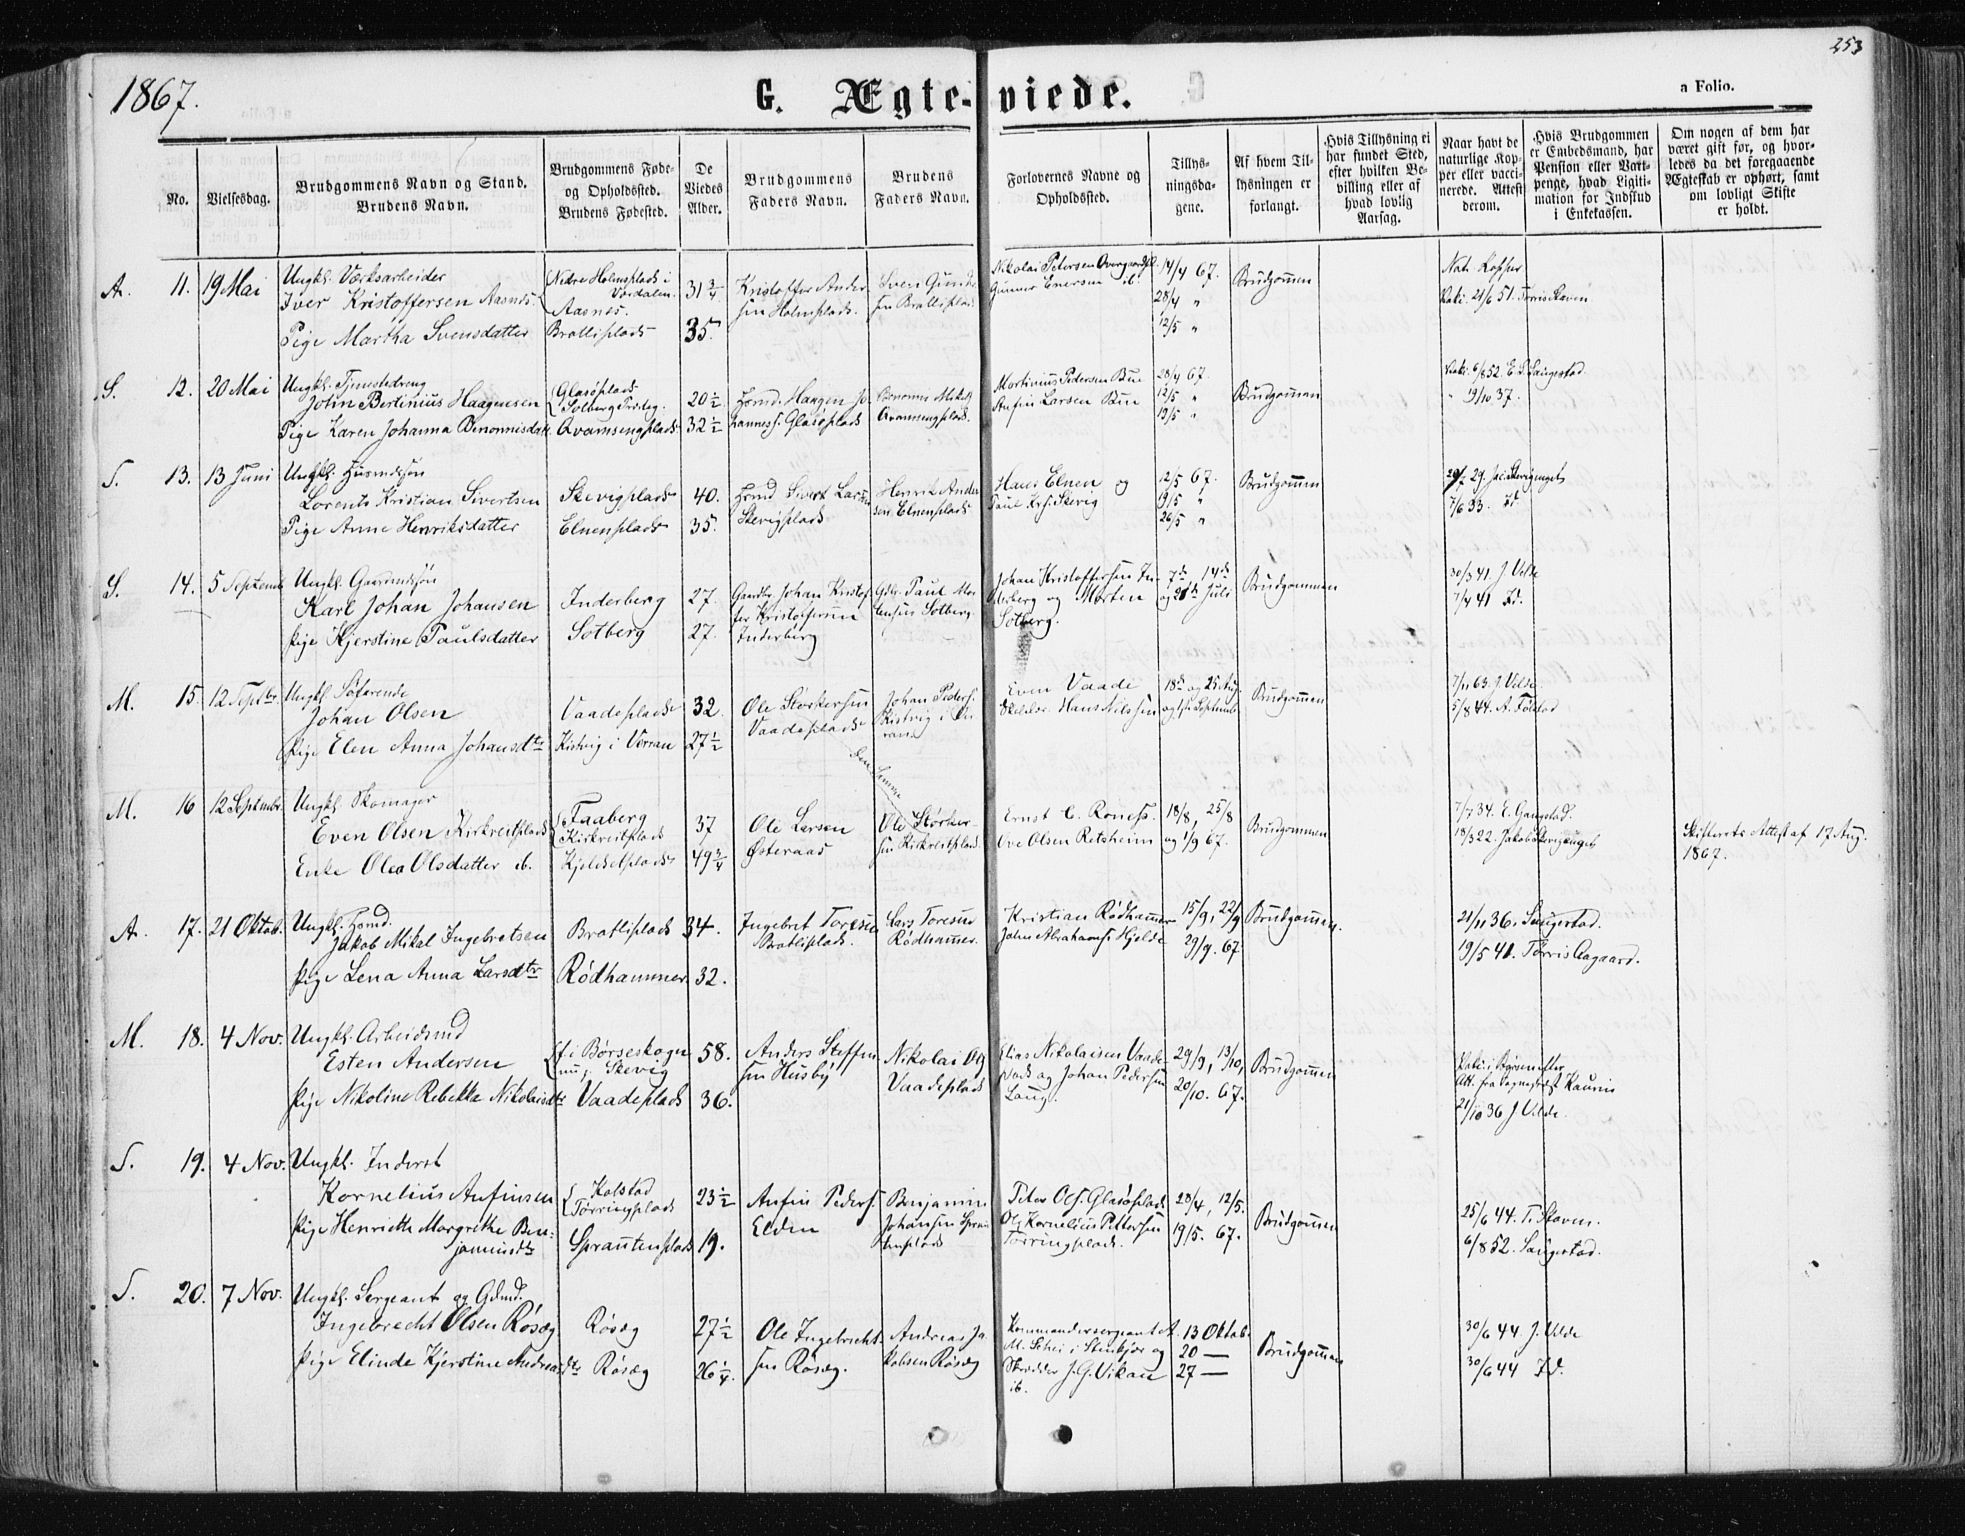 1867.
G. Ægte-viede.
253
a Folio.
No.
Vielsesdag.
Brudgommens Navn og Stand.
Brudens Navn.
Brudgommens Føde-
og Opholdssted.
Brudens Fødested.
De
Viedes
Alder.
Brudgommens
Faders Navn.
Brudens
Faders Navn.
Forlovernes Navne og
Opholdssted.
Tillys-
ningsda-
gene.
Af hvem Til-
lysningen er
forlangt.
Hvis Tillysning ei
har fundet Sted,
efter hvilken Be-
villing eller af
hvad lovlig
Aarsag.
Naar havt de
naturlige Kop-
per eller vacci-
nerede. Attest
derom.
Hvis Brudgommen
er Embedsmand, har
Pension eller Vart-
penge, hvad Ligiti-
mation for Indskud
i Enkekassen.
Om nogen af dem har
været gift før, og hvor-
ledes da det foregaaende
Ægteskab er ophørt, samt
om lovligt Skifte
er holdt.
A. 11. 19 Mai
Ungkl. Værksarbeider
Iver Kristoffersen Aasnes
Pige Martha Svensdatter
Nedre Holmsplads i
Værdalen.
Aasnes.
Bratliplads
31 3/4
35.
Kristoffer Ander
sen Holmsplads.
Sven Gunder
sen Bratliplads
Nikolai Petersen Overgaardspl.
Gunner Enersen ib.
14/4 67.
28/4 "
12/5 "
Brudgommen
Nat. Kopper
Vakc. 21/6 51. Torris Staven
S. 12. 20 Mai
Ungkl. Tjenestedreng
John Bertinius Haagensen
Pige Karen Johanna Benonnisdatt.
Glasøplads
Solberg Trdlg.
Qvamsengplads
20 1/2
32 1/2
Husmd. Haagen Jo
hanness. Glasøplads
Benonni Mikels
Qvamsengplads.
Mortinius Pedersen Bue
Anfin Larsen Bue
28/4 67.
12/5 "
19/5 "
Brudgommen
Vakc. 6/8 52. E. S. Saugestad.
" 19/10 37. "
S. 13. 13 Juni
Ungkl. Husmdssøn
Lorents Kristian Sivertsen
Pige Anne Henriksdatter
Skevigplads
Elnesplads
40.
35.
Husmd Sivert Larsen
Skevigplads
Henrik Ander
sen Elnesplads
Hans Elnen og
Paul Krs. Skevig
12/5 67.
19/5 "
26/5 "
Brudgommen
7/6 33. Id
S. 14. 5 Septemb.
Ungkl. Gaardmdssøn
Karl Johan Johansen
Pige Kjerstine Paulsdatter
Inderberg
Sotberg
27.
27.
Gaardbr. Johan Kristof
fer Kristoffersen
Inderberg
Gdbr. Paul Mor
tensen Sotberg
Johan Kristoffersen In-
derberg og Morten
Sotberg.
7de, 14de
og 21de Juli
Brudgommen
30/3 41. J. Velde
7/4 41 Id.
M. 15. 12 Septbr.
Ungkl. Søfarende
Johan Olsen
Pige Elen Anna Johansdtr
Vaadeplads
Kistvig i Verran
32.
27 1/2
Ole Storkersen
Vaadeplads
Johan Peders.
Kistvig i Ver
ran
Even Vaade
Skilsae. Hans Nilssen
18de og 25 Aug.
og 1ste Septemb.
Brudgommen
7/11 63. J. Velde.
5/8 44. A. Følstad
M. 16 12 Septembr.
Ungkl. Skomager
Even Olsen Kirkreitplads
Enke Olea Olsdatter ib.
Faaberg
Kirkreitplads
Kjeldsetplads
37
49 3/4
Ole Larsen
Østeraas
Den Samme
Ole Størker
sen Kirkreitplads
Ernst C. Røness.
Ove Olsen Retsheim
18/8, 25/8
og 1/9 67.
Brudgommen
7/7 34. E. Gangstad.
18/3 22. Jakob Skevigenget
Skifterets Attest af 17 Aug.
1867.
A. 17. 21 Oktob.
Ungkl. Husmd.
Jakob Mikal Ingebretsen
Pige Lena Anna Larsdtr
Bratliplads
Rødhammer
34.
32.
Ingebret Toresen
Bratliplads.
Lars Toresen
Rødhammer.
Kristian Rødhamer
John Abrahams. Hjelde
15/9, 22/9
29/9. 67.
Brudgommen.
21/11 36. Saugestad.
19/5 41. Torris Aagaard.
M. 18. 4 Nov.
Ungkl. Arbeidsmd
Esten Andersen
Pige Nikoline Rebekka Nikolaisdtr
f. i Børseskogn
nu p. Skevig
Vaadeplads
58.
36.
Anders Steffen
sen Husby
Nikolai Ols
Vaadeplads
Elias Nikolaisen Vaade-
plads og Johan Pedersen
Laug.
29/9, 13/10,
20/10. 67.
Brudgommen
Vakc. i Børsen efter
Att. fra Sogneprest Kaurin
21/10 36 J. Velde.
S. 19. 4 Nov.
Ungkl. Inderst
Kornelius Anfinsen
Pige Henriette Margrethe Ben-
jaminsdtr
Kolstad
Tørringplads
Sprautenplads
23 1/2
19.
Anfin Peders.
Elden
Benjamin
Johansen Sprau
tenplads
Peter Ols. Glasøplads
Og Kornelius Pettersen
Tørringplads.
28/4, 12/5.
19/5. 67.
Brudgommen
25/6 44. T. Staven.
6/8 52. Saugestad.
S. 20. 7 Nov.
Ungkl. Sergeant og Gdmd.
Ingebrecht Olsen Røsæg
Pige Elinde Kjerstine Andreasdtr
Røsæg
Røsæg
27 1/2
26 1/4.
Ole Ingebrecht
sen Røsæg.
Andreas Ja
kobsen Røsæg
Kommandersergeant A.
M. Schei i Stenkjær og
Skrædder J. G. Vikan
ib.
13 Oktob.
20 —
27 —
Brudgommen
30/6 44. J. Velde
30/6 44 Id.